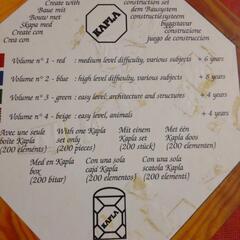 Create with
Baue mit
Bouw met
Skapa med
Crea con
Crea con
construction set
dem Bausystem
bouwsysteem
byggsatser
costruzione
juego de construccion
KAPLA
Volume n° 1 - red : medium level difficulty, various subjects + 6 years
Volume n° 2 - blue : high level difficulty, various subjects + 8 years
Volume n° 3 - green : easy level; architecture and structures + 4 years
Volume n° 4 - beige : easy level, animals + 4 years
Avec une seule boîte Kapla (200 éléments)
With one Kapla set only (200 pieces)
Mit einem Kapla set (200 stück)
Met één Kapla doos (200 elementen)
Med en Kapla box (200 bitar)
Con una sola caja Kapla (200 elementos)
Con una sola scatola Kapla (200 elementi)
KAPLA